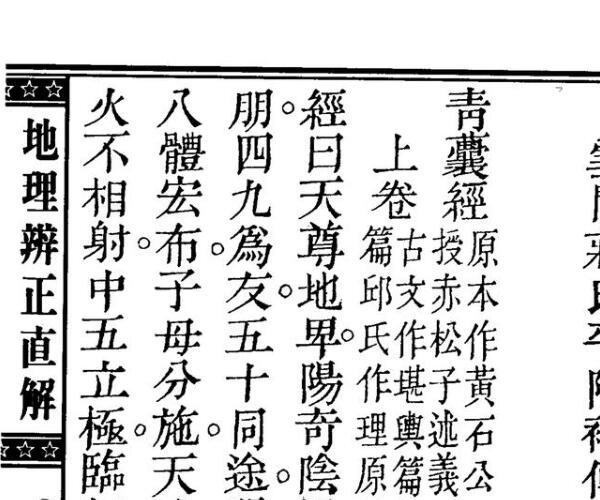 青囊經
原本作黃石公
授赤松子述義
上卷
古文作堪輿篇
篇邱氏作理原
經曰天尊地卑。陽奇陰
朋。四九爲友。五十同途。
八體宏布。子母分施。天
火不相射。中五立極。臨
地理辨正直解